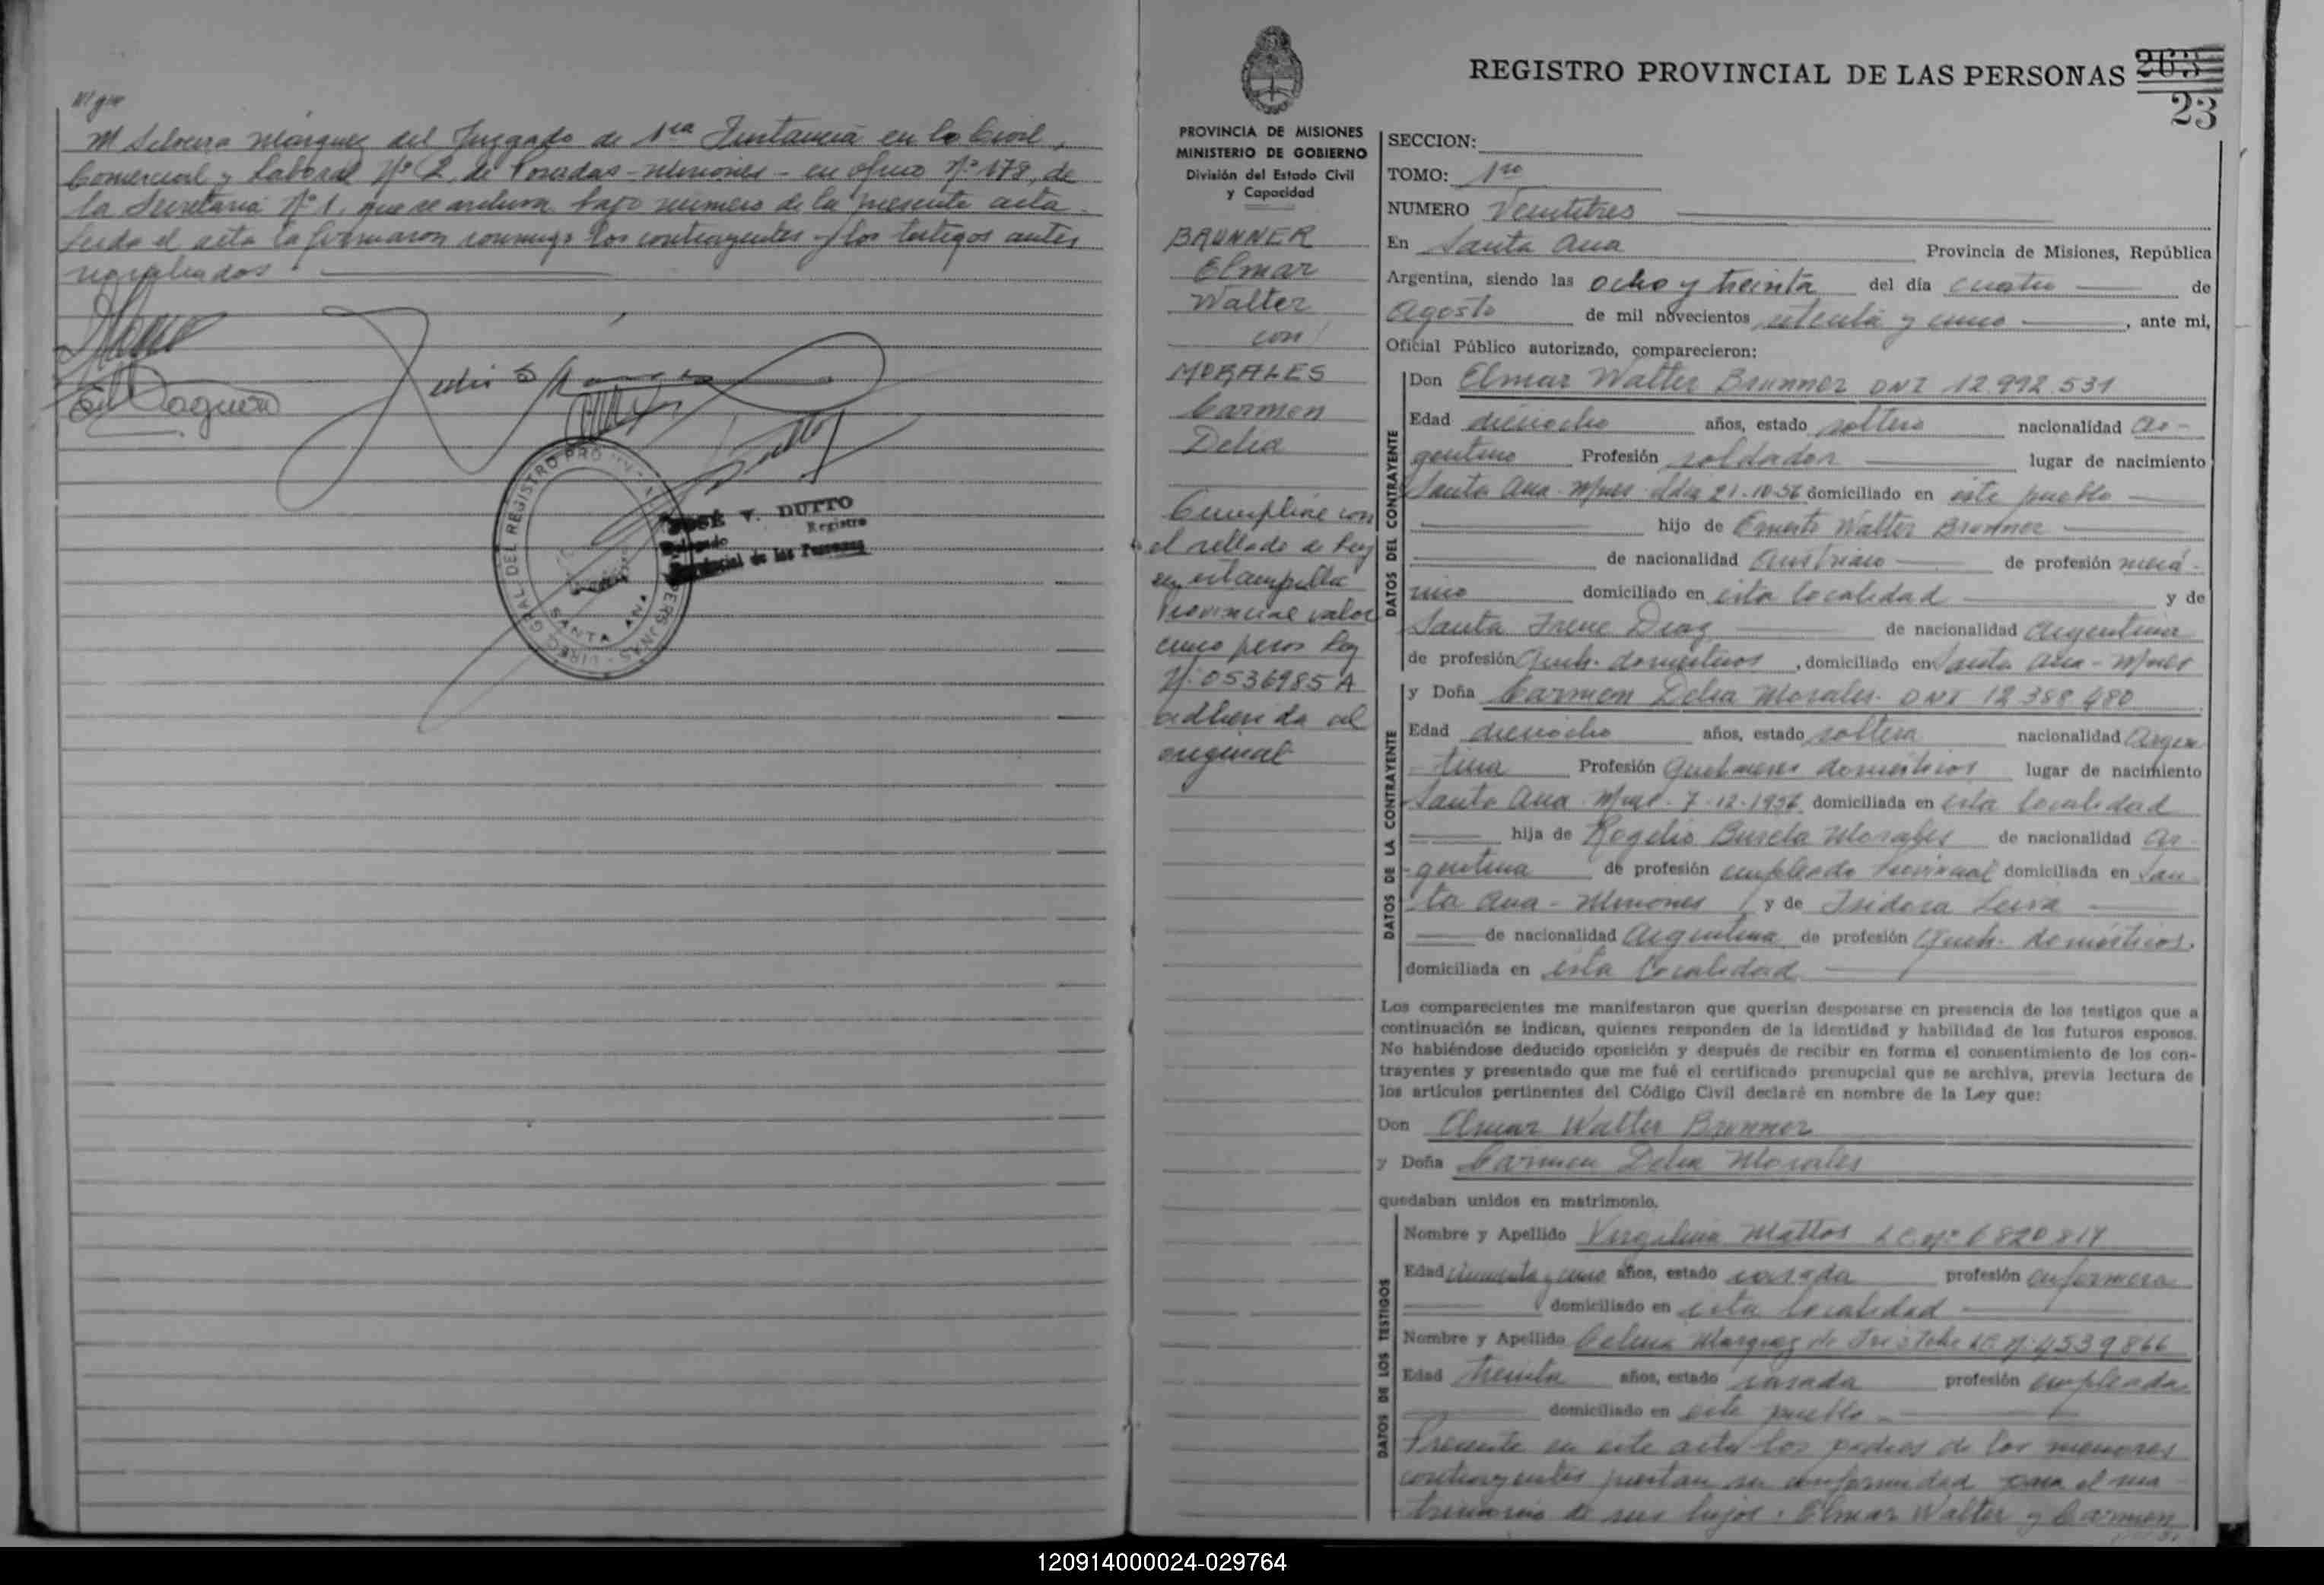 M Silveira Marquez del Juzgado de 1ra Instancia en lo Civil,
Comercial y Laboral Nº 2, de Posadas-Misiones - en oficio Nº 178, de
la Secretaria Nº 1, que se archiva bajo número de la presente acta.
Leida el acta la firmaron conmigo los contrayentes y los testigos antes
DIREC. GRAL DEL REJISTRO PRO
PERSONAS
SANTA ANA
JOSÉ V. DUTTO
Delegado Registro
Provincial de las Personas
REGISTRO PROVINCIAL DE LAS PERSONAS
23
PROVINCIA DE MISIONES
MINISTERIO DE GOBIERNO
División del Estado Civil
y Capacidad
BRUNNER
Elmar
Walter
con
MORALES
Carmen
Delia
Cumpliré con
el sellado de Ley
en estampilla
Provincial valor
cinco pesos Ley
Nº 0536985 A
adherida al
original
SECCION:
TOMO: 1ro
NUMERO Veintitres
En Santa Ana Provincia de Misiones, República
Argentina, siendo las ocho y treinta del día cuatro de
Agosto de mil novecientos setenta y cinco, ante mi,
Oficial Público autorizado, comparecieron:
DATOS DEL CONTRAYENTE
Don Elmar Walter Brunner DNI 12.992.531
Edad dieciocho años, estado soltero nacionalidad Ar-
gentino Profesión soldador lugar de nacimiento
Santa Ana Mnes día 21-10-56 domiciliado en este pueblo
hijo de Ernesto Walter Brunner
de nacionalidad Austriaco de profesión mecá-
nico domiciliado en esta localidad y de
Santa Irene Diaz de nacionalidad Argentina
de profesión Queh. domesticos, domiciliado en Santa Ana - Mnes
DATOS DE LA CONTRAYENTE
y Doña Carmen Delia Morales. DNI 12.388.480
Edad dieciocho años, estado soltera nacionalidad Argen
tina Profesión Quehaceres domésticos lugar de nacimiento
Santa Ana Mnes. 7-12-1956 domiciliada en esta localidad
hija de Rogelio Morales de nacionalidad Ar-
gentina de profesión empleado Provincial domiciliada en San
ta Ana - Misiones y de Isidora Leiva
de nacionalidad Argentina de profesión Queh. domésticos.
domiciliada en esta localidad
Los comparecientes me manifestaron que querían desposarse en presencia de los testigos que a
continuación se indican, quienes responden de la identidad y habilidad de los futuros esposos.
No habiéndose deducido oposición y después de recibir en forma el consentimiento de los con-
trayentes y presentado que me fué el certificado prenupcial que se archiva, previa lectura de
los artículos pertinentes del Código Civil declaré en nombre de la Ley que:
Don Elmar Walter Brunner
y Doña Carmen Delia Morales
quedaban unidos en matrimonio.
DATOS DE LOS TESTIGOS
Nombre y Apellido Virgilina Mattos LC Nº 6820814
Edad cincuenta y cinco años, estado casada profesión enfermera
domiciliado en esta localidad
Nombre y Apellido Celina Marquez de LC Nº 4539866
Edad treinta años, estado casada profesión empleada
domiciliado en este pueblo
Presente en este acta los padres de los menores
contrayentes prestan su conformidad para el ma
trimonio de sus hijos. Elmar Walter y Carmen
120914000024-029764